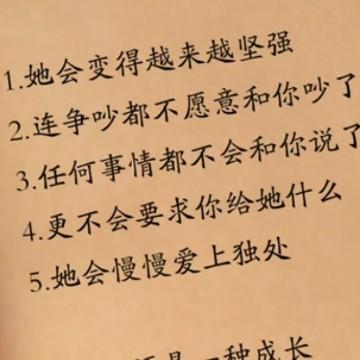 1.她会变得越来越坚强
2.连争吵都不愿意和你吵了
3.任何事情都不会和你说了
4.更不会要求你给她什么
5.她会慢慢爱上独处
是一种成长